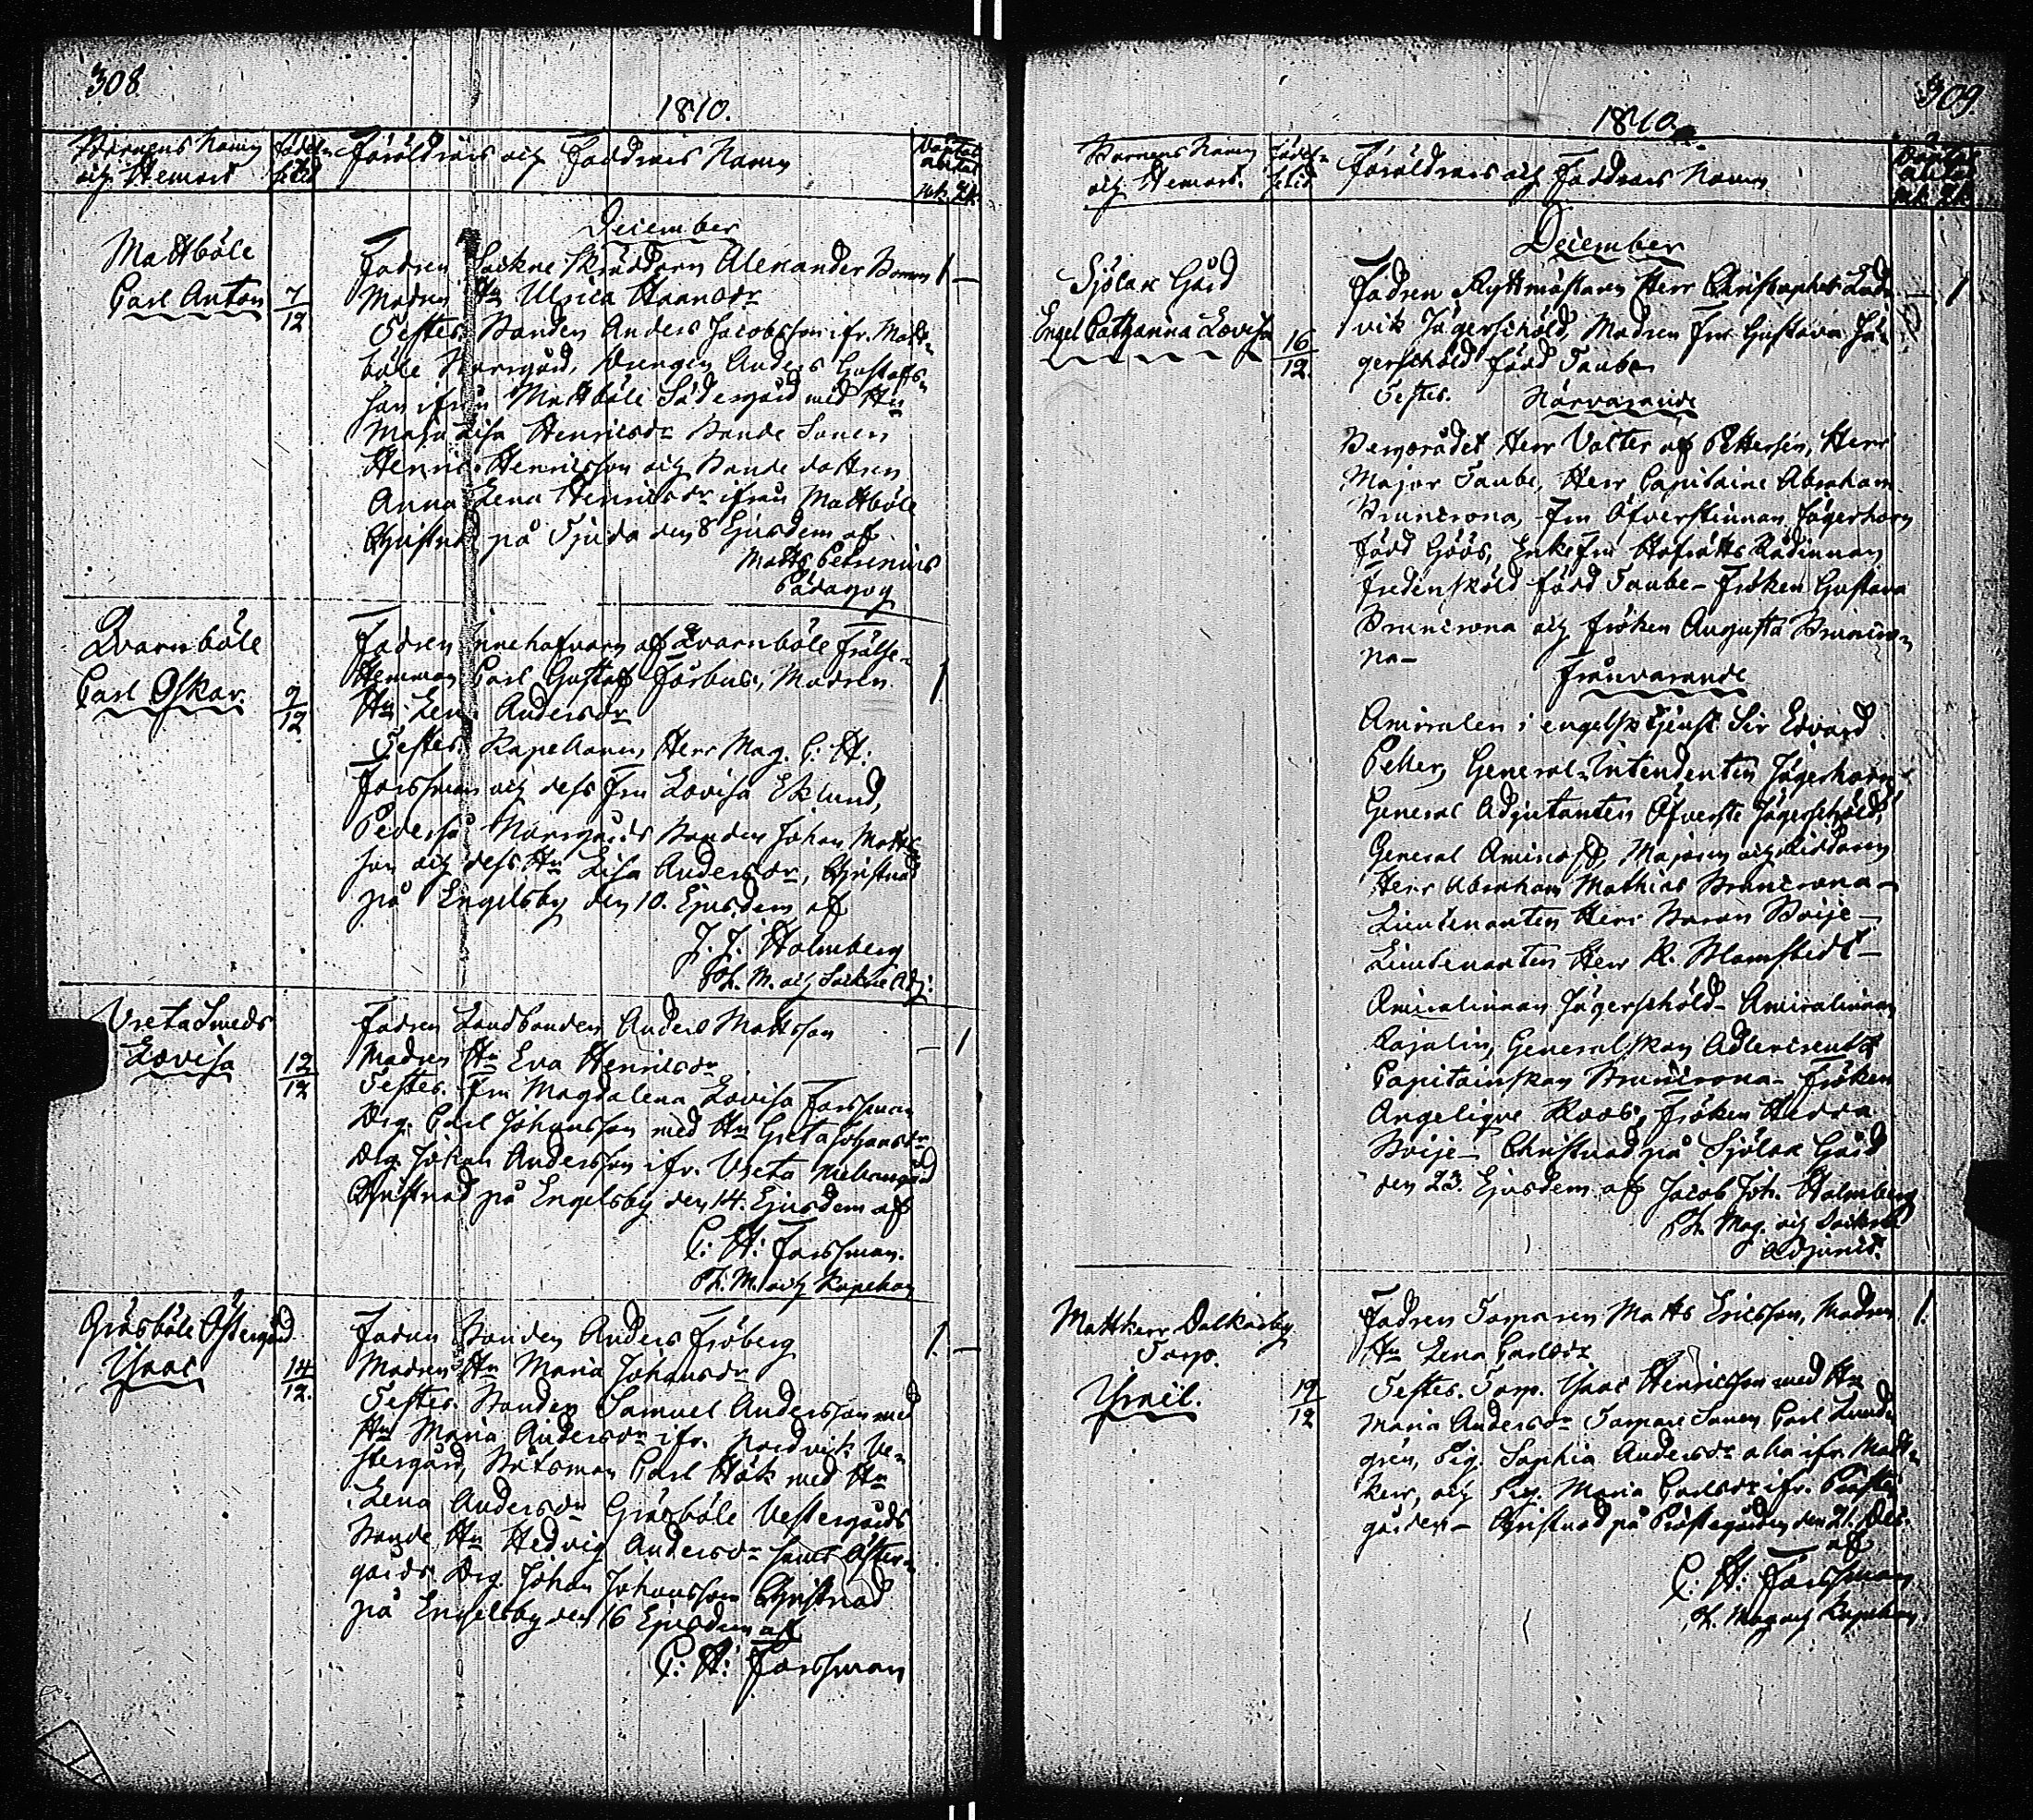 308
1810.
Barnens Namn
och Hemort
Födelse
tid
Föräldrars och Faddrars Namn
December
Mattböle
Carl Anton
7/12
Fadren Sockne Skräddarn Alexander
Madren Hu Ulrica
Testes. Bonden Anders Jacobsson ifr. Matt-
böle Norrgård, Drengen Anders Gustafs-
son ifrån Mattböle Södergård med Hu
Maja Lisa Henricsdr Bonde Sonen
Henric Henricsson och Bonde dottren
Anna Lena Henricsdr ifrån Mattböle
Christnad på Tjuda den 8 Ejusdem af
Matts Petrenius
Pädagog
Qvarnböle
Carl Oskar.
9/12
Fadren Innehafvarn af Qvarnböle Frälse-
Hemman Carl Gustaf Forbus, Madren
Hu Lena Andersdr
Testes. Kapellanen Herr Mag. C: H:
Forssman och dess Fru Lovisa Eklund,
Pederså Norrgårds Bonden Johan Matts-
son och dess Hu Lisa Andersdr, Christnad
på Engelsby den 10. Ejusdem af
J. J. Holmberg
Ph. M. och Sockne Adj:
Vreta Smeds
Lovisa
12/12
Fadren Landbonden Anders Mattsson
Madren Hu Eva Henricsdr
Testes. Fru Magdalena Lovisa Forssman
Drg. Carl Johansson med Hu Greta Johansdr
Drg. Johan Andersson ifr. Vreta Mellangård
Christnad på Engelsby den 14. Ejusdem af
C: H: Forssman.
Ph. M. och Kapellan
Gräsböle Östergård
Isaac
14/12.
Fadren Bonden Anders Fröberg
Madren Hu Maria Johansdr
Testes. Bonden Samuel Andersson med
Hu Maria Andersdr ifr. Nordvik Ve-
stergård, Båtsman Carl Hök med Hu
Lena Andersdr Gräsböle Vestergårds
Bonde Hu Hedvig Andersdr samt Öster-
gårds Drg. Johan Johansson Christnad
på Engelsby den 16 Ejusdem af
C: H: Forssman
309.
1810.
Barnens Namn
och Hemort.
Födelse
tid
Föräldrars och Faddrars Namn
December
Sjölax Gård
Engel Catharina Lovisa
16/12.
Fadren Ryttmästaren Herr Christopher Lud-
vik Jägerschöld, Madren Fru Gustava Jä-
gerschöld född Taube
Testes. Närvarande
Bergsrådet Herr Volter af Pettersén, Herr
Major Taube, Herr Capitaine Abraham
Bruncrona, Fru Öfverstinnan Jägerhorn
född Göös, Enkefru Hofrätts Rådinnan
Fredensköld född Taube – Fröken Gustava
Bruncrona och Fröken Augusta Bruncro-
na –
Frånvarande
Amiralen i engelsk tjenst Sir Edvard
Peller, General-Intendenten Jägerhorn
General Adjutanten Öfverste Jägerschöld,
General Aminoff, Majoren och Riddaren
Herr Abraham Mathias Bruncrona –
Lieutenanten Herr Baron Boije –
Lieutenanten Herr R. Blomstedt –
Amiralinnan Jägerschöld – Amiralinnan
Rajalin, Generalskan Adlercreutz
Capitainskan Bruncrona – Fröken
Angelique Roos, Fröken Hedda
Boije – Christnad på Sjölax Gård
den 23. Ejusdem af Jacob Joh. Holmberg
Ph. Mag. och Sockne
Adjunct.
Mattkerr Dalkarby
Torp.
19/12
Fadren Torparen Matts Ericsson, Madren
Hu Lena Carlsdr
Testes. Torp. Isaac Henricsson med Hu
Maria Andersdr Torpare Sonen Carl Lund-
gren, Pig. Sophia Andersdr alla ifr. Matt-
kerr, och Pig. Maria Carlsdr ifr. Prästa-
gården – Christnad på Prästegården den 21. Dec.
af
C: H: Forssman
Ph. Mag och Kapellan